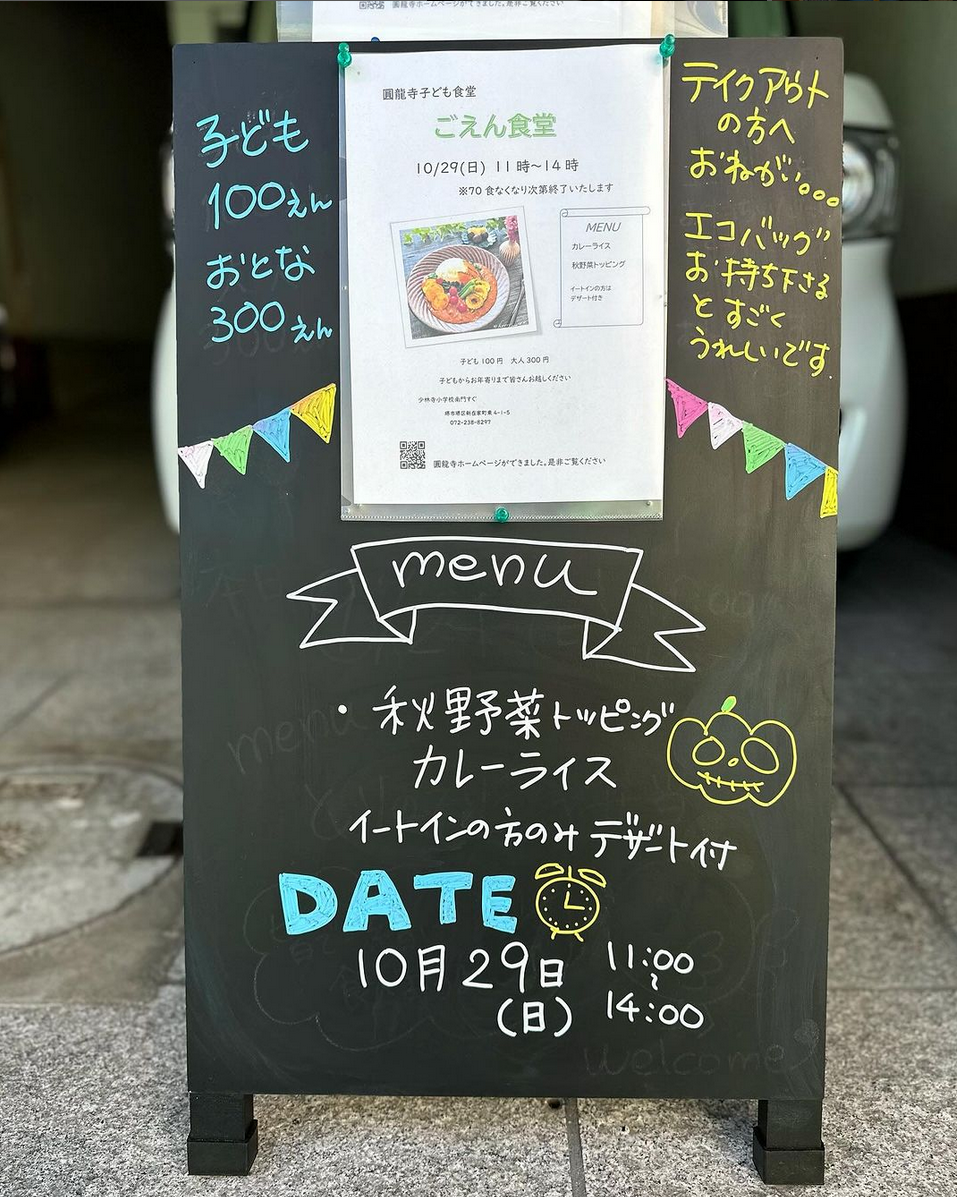 圓龍寺ホームページができました。是非ご覧ください
子ども
100えん
おとな
300えん
圓龍寺子ども食堂
ごえん食堂
10/29(日) 11時～14時
※70食なくなり次第終了いたします
MENU
カレーライス
秋野菜トッピング
イートインの方は
デザート付き
子ども100円 大人300円
子どもからお年寄りまで皆さんお越しください
少林寺小学校南門すぐ
堺市堺区新在家町東4-1-5
072-238-8297
圓龍寺ホームページができました。是非ご覧ください
テイクアウト
の方へ
おねがい。。。
エコバッグ
お持ち下さる
とすごく
うれしいです。
menu
・秋野菜トッピング
カレーライス
イートインの方のみデザート付
DATE
10月29日
(日)
11:00
～
14:00
menu
welcome